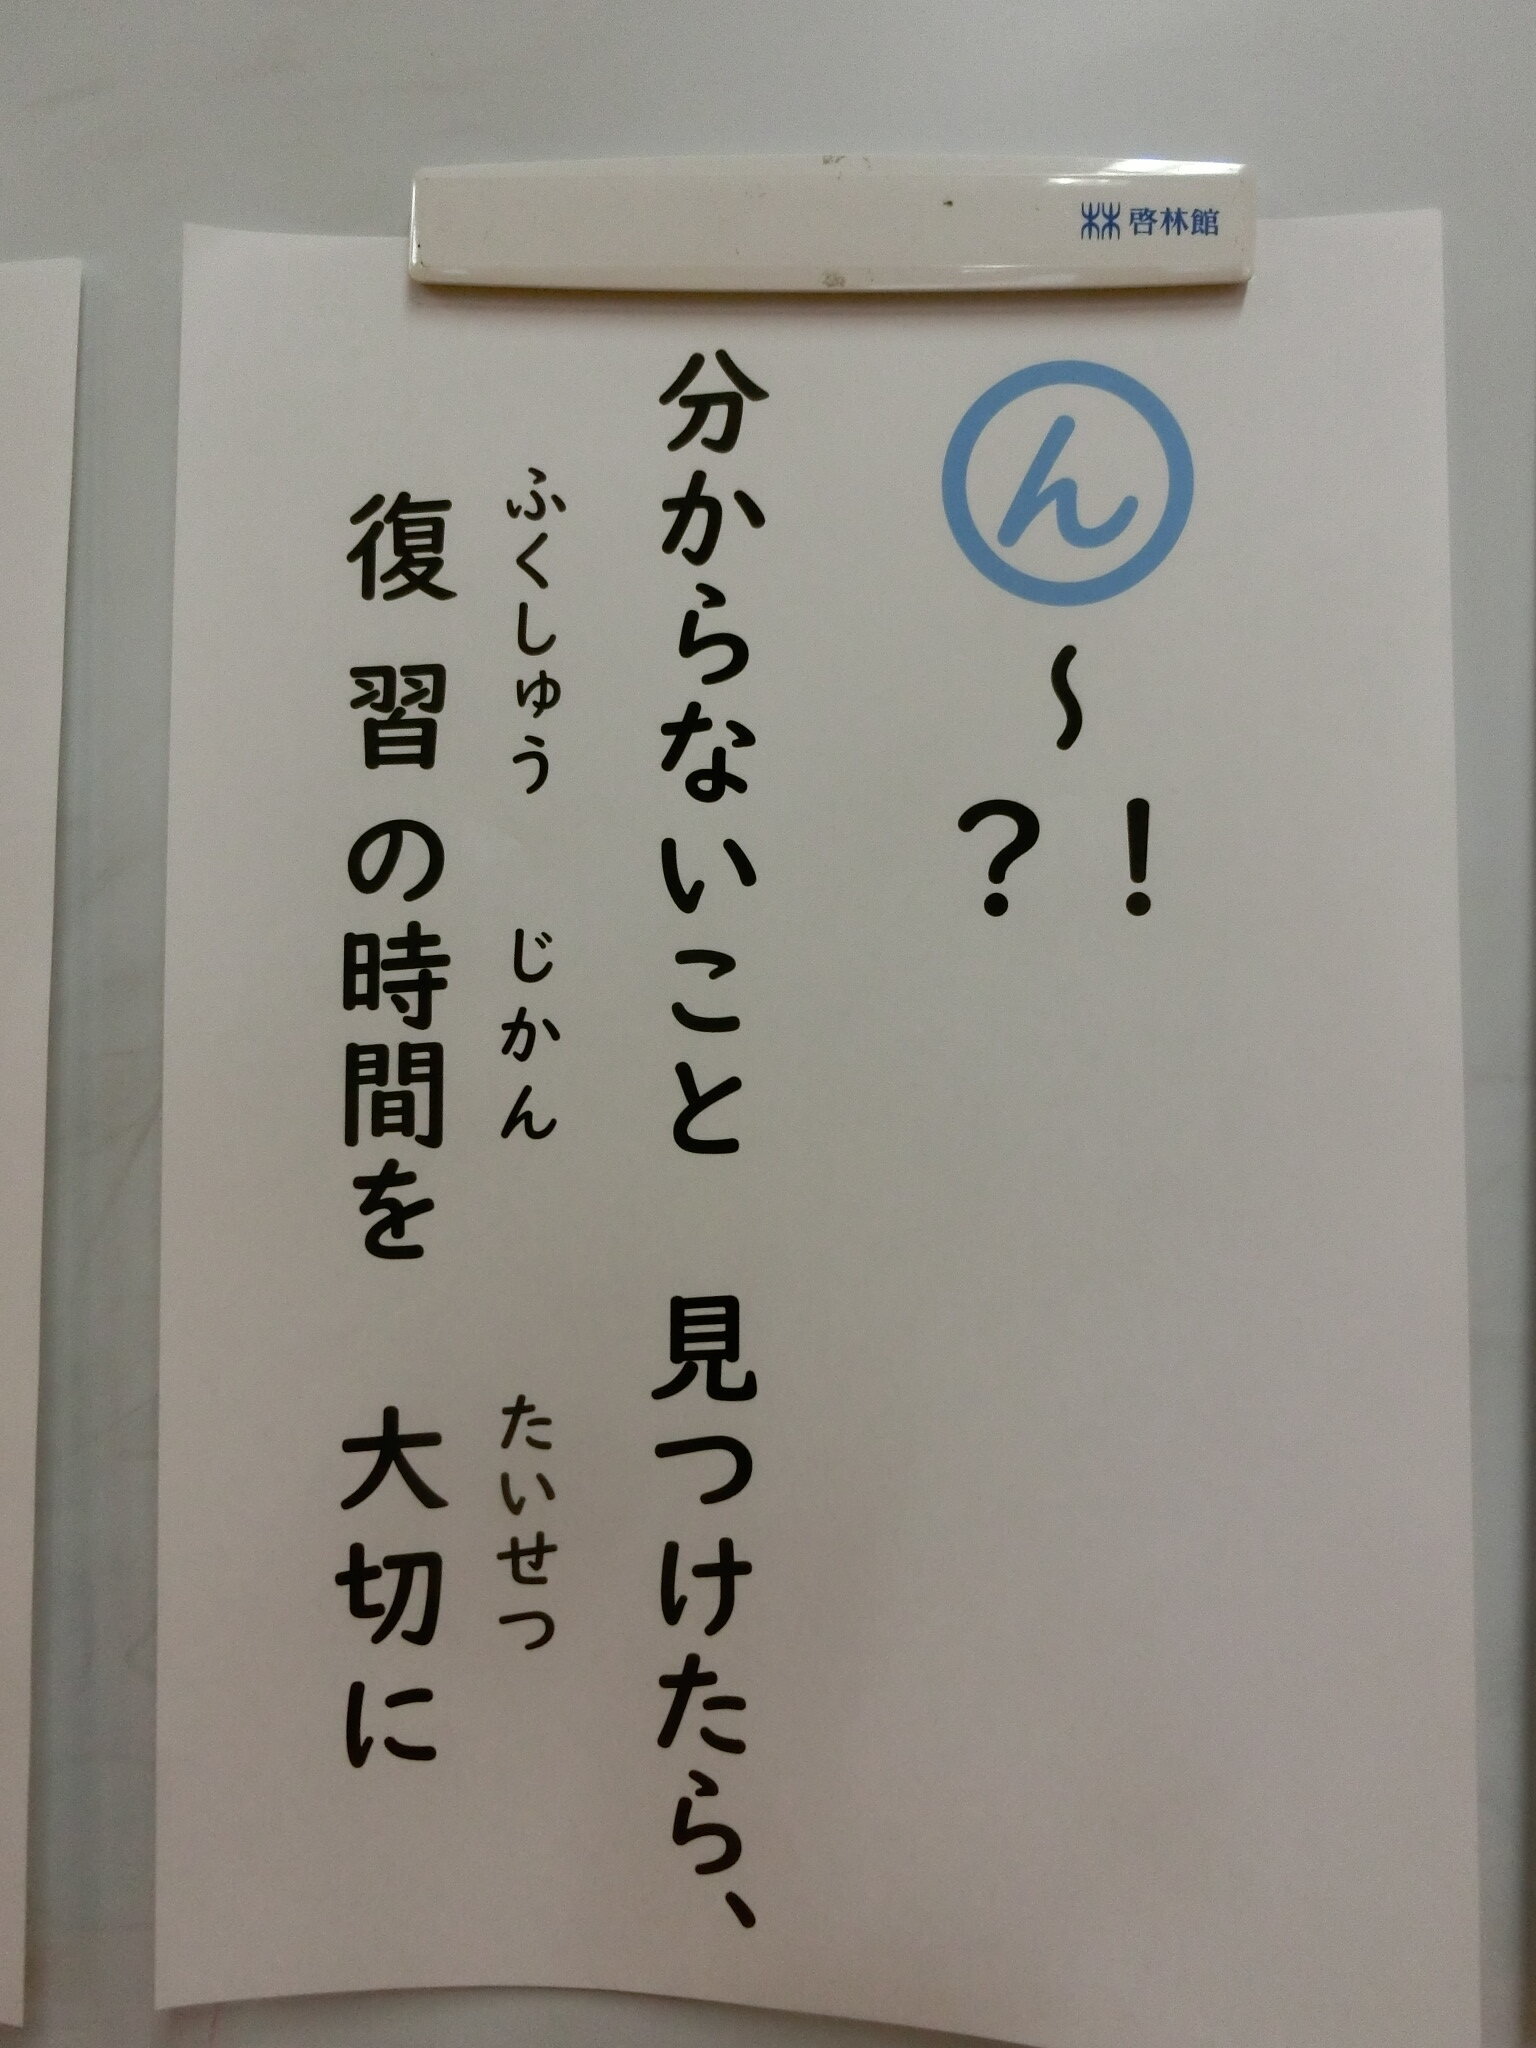 啓林館
ん〜!?
分からないこと 見つけたら、
ふくしゅう じかん たいせつ
復習の時間を 大切に